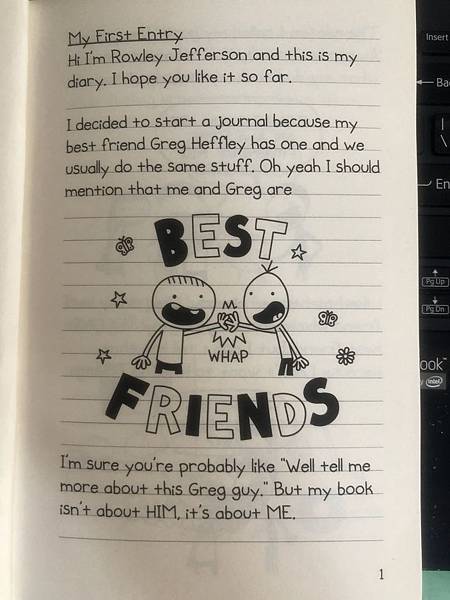 My First Entry
Hi I'm Rowley Jefferson and this is my
diary. I hope you like it so far.
I decided to start a journal because my
best friend Greg Heffley has one and we
usually do the same stuff. Oh yeah I should
mention that me and Greg are
BEST
WHAP
FRIENDS
I'm sure you're probably like "Well tell me
more about this Greg guy." But my book
isn't about HIM, it's about ME.
1
Insert
Pg Up
Pg Dn
intel